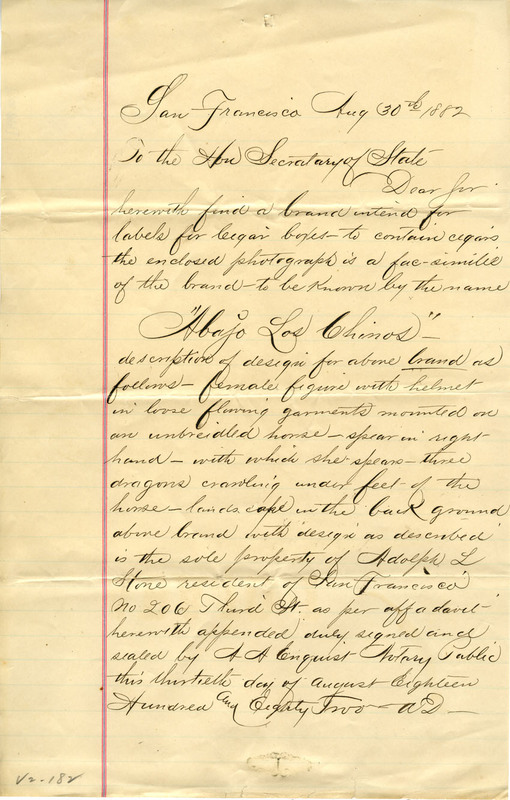 San Francisco Aug 30th 1882
To the Hon Secratary of State
Dear Sir
herewith find a brand intend for
labels for Cegar boxes - to contain cegars
the enclosed photograph is a fac-similie
of the brand - to be known by the name
"Abajo Los Chinos" -
description of design for above brand as
follows - female figure with helmet
in loose flowing garments mounted on
an unbreidled horse - spear in right
hand - with which she spears - three
dragons crawling under feet of the
horse - landscape in the back ground
above brand with design as described
is the sole property of Adolph L
Stone resident of San Francisco
No 206 Third St. as per affadavit
herewith appended duly signed and
sealed by A A Enquist Notary Public
this thirtieth day of August Eighteen
Hundred and Eighty Two - AD -
V2-182